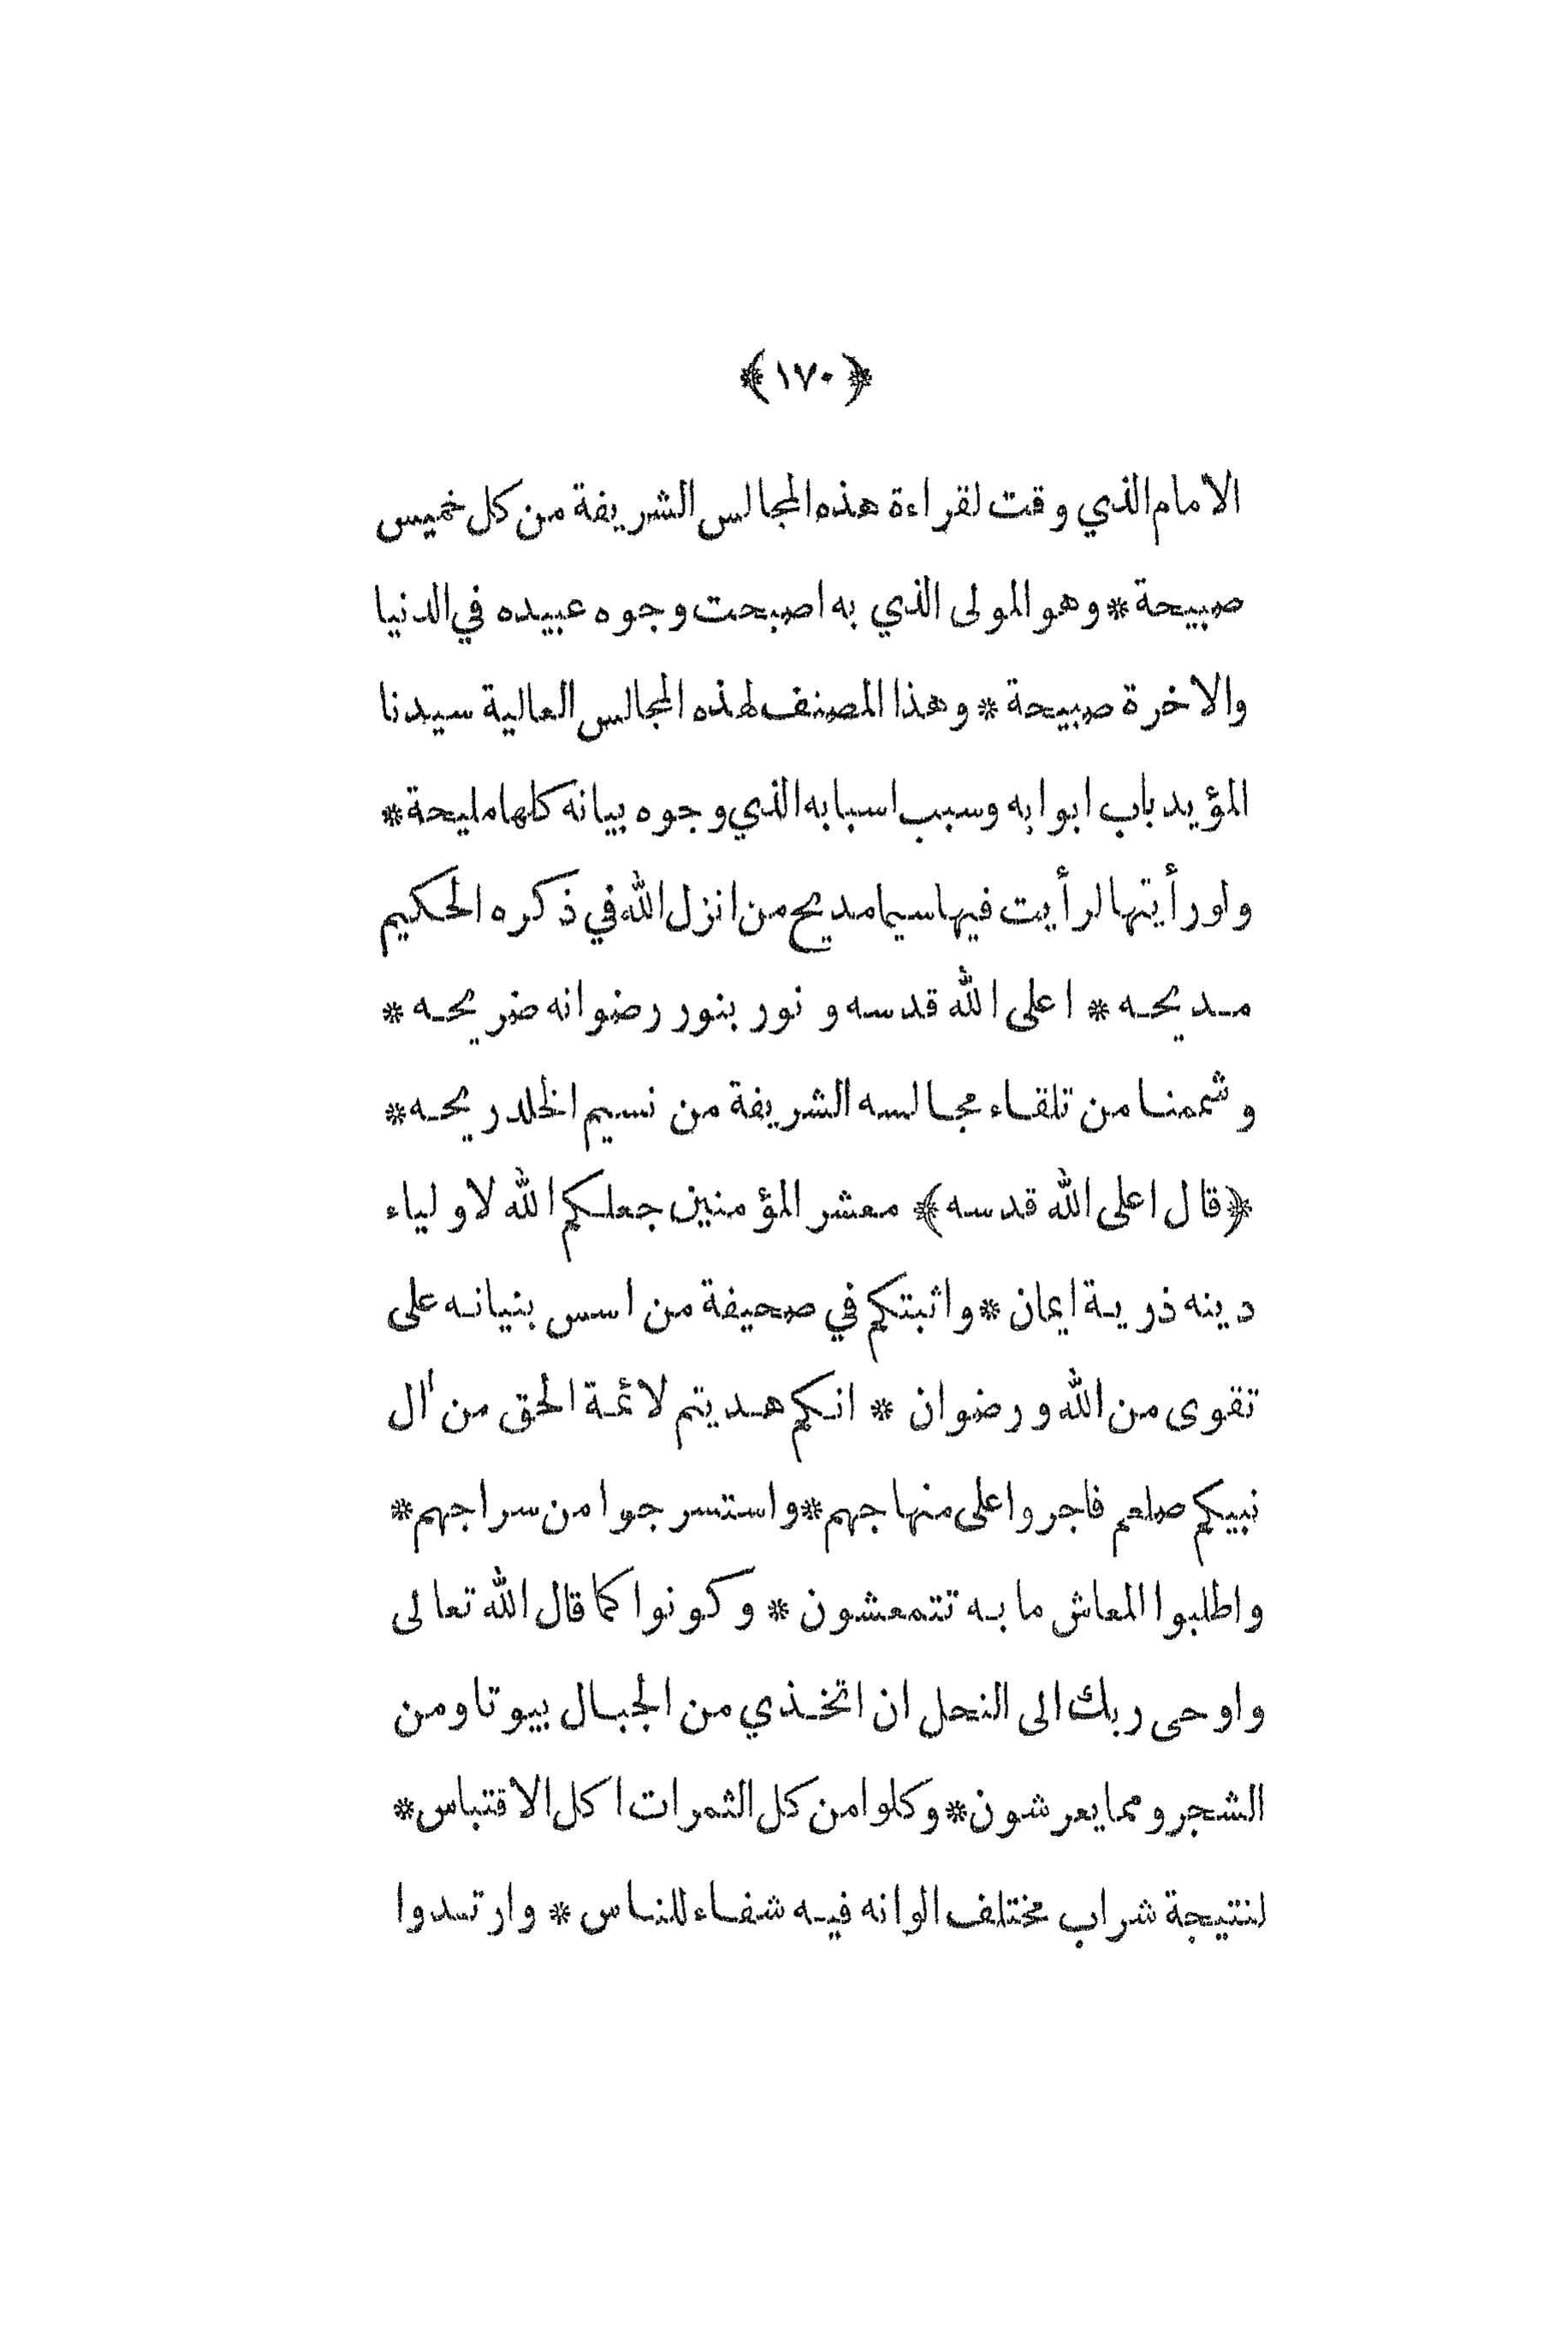 ﴿١٧٠﴾
الامام الذي وقت لقراءة هذه المجالس الشريفة من كل خميس
صبيحة * وهو المولى الذي به اصبحت وجوه عبيده في الدنيا
والاخرة صبيحة * وهذا المصنف لهذه المجالس العالية سيدنا
المؤيد باب ابوابه وسبب اسبابه الذي وجوه بيانه كلها مليحة *
ولو رأيتها لرأيت فيها سيما مديح من انزل الله في ذكره الحكيم
مديحه * اعلى الله قدسه و نور بنور رضوانه ضريحه *
وشممنا من تلقاء مجالسه الشريفة من نسيم الخلد ريحه *
﴿قال اعلى الله قدسه﴾ معشر المؤمنين جعلكم الله لاولياء
دينه ذرية ايمان * واثبتكم في صحيفة من اسس بنيانه على
تقوى من الله ورضوان * انكم هديتم لائمة الحق من اٰل
نبيكم صلعم فاجروا على منهاجهم * واستسرجوا من سراجهم *
واطلبوا المعاش ما به تتمعشون * وكونوا كما قال الله تعالى
واوحى ربك الى النحل ان اتخذي من الجبال بيوتا ومن
الشجر ومما يعرشون * وكلوا من كل الثمرات اكل الاقتباس *
لنتيجة شراب مختلف الوانه فيه شفاء للناس * وارتدوا